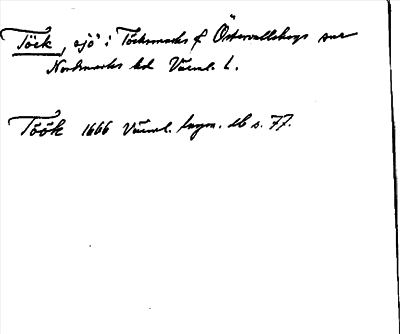 Töck, sjö i Töcksmarks o Östervallskogs snr
Nordmarks hd Värml. l.
Töök 1666 Värml. lagm. db s. 77.